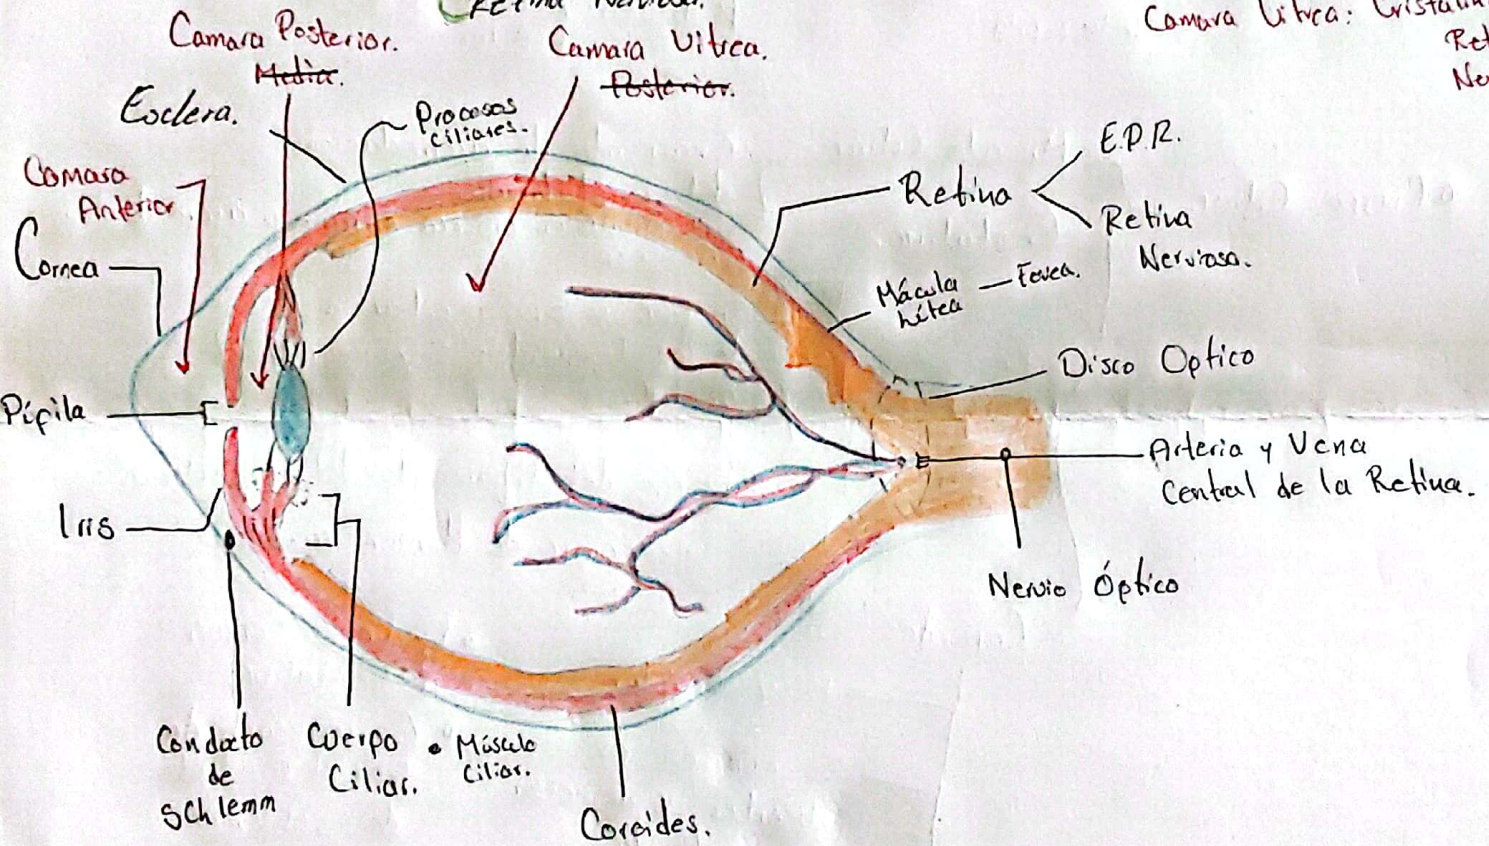 Retina Nerviosa.
Camara Vitrea: Cristalin
Ret
Ne
Camara Posterior.
Media.
Camara Vitrea.
Posterior.
Esclera.
Procesos
Ciliares.
Camara
Anterior
Cornea
Retina
E.P.R.
Retina
Nerviosa.
Mácula
Lútea
Fovea.
Disco Optico
Púpila
Arteria y Vena
Central de la Retina.
Iris
Nervio Óptico
Conducto
de
Schlemm
Cuerpo
Ciliar.
• Músculo
Ciliar.
Coroides.